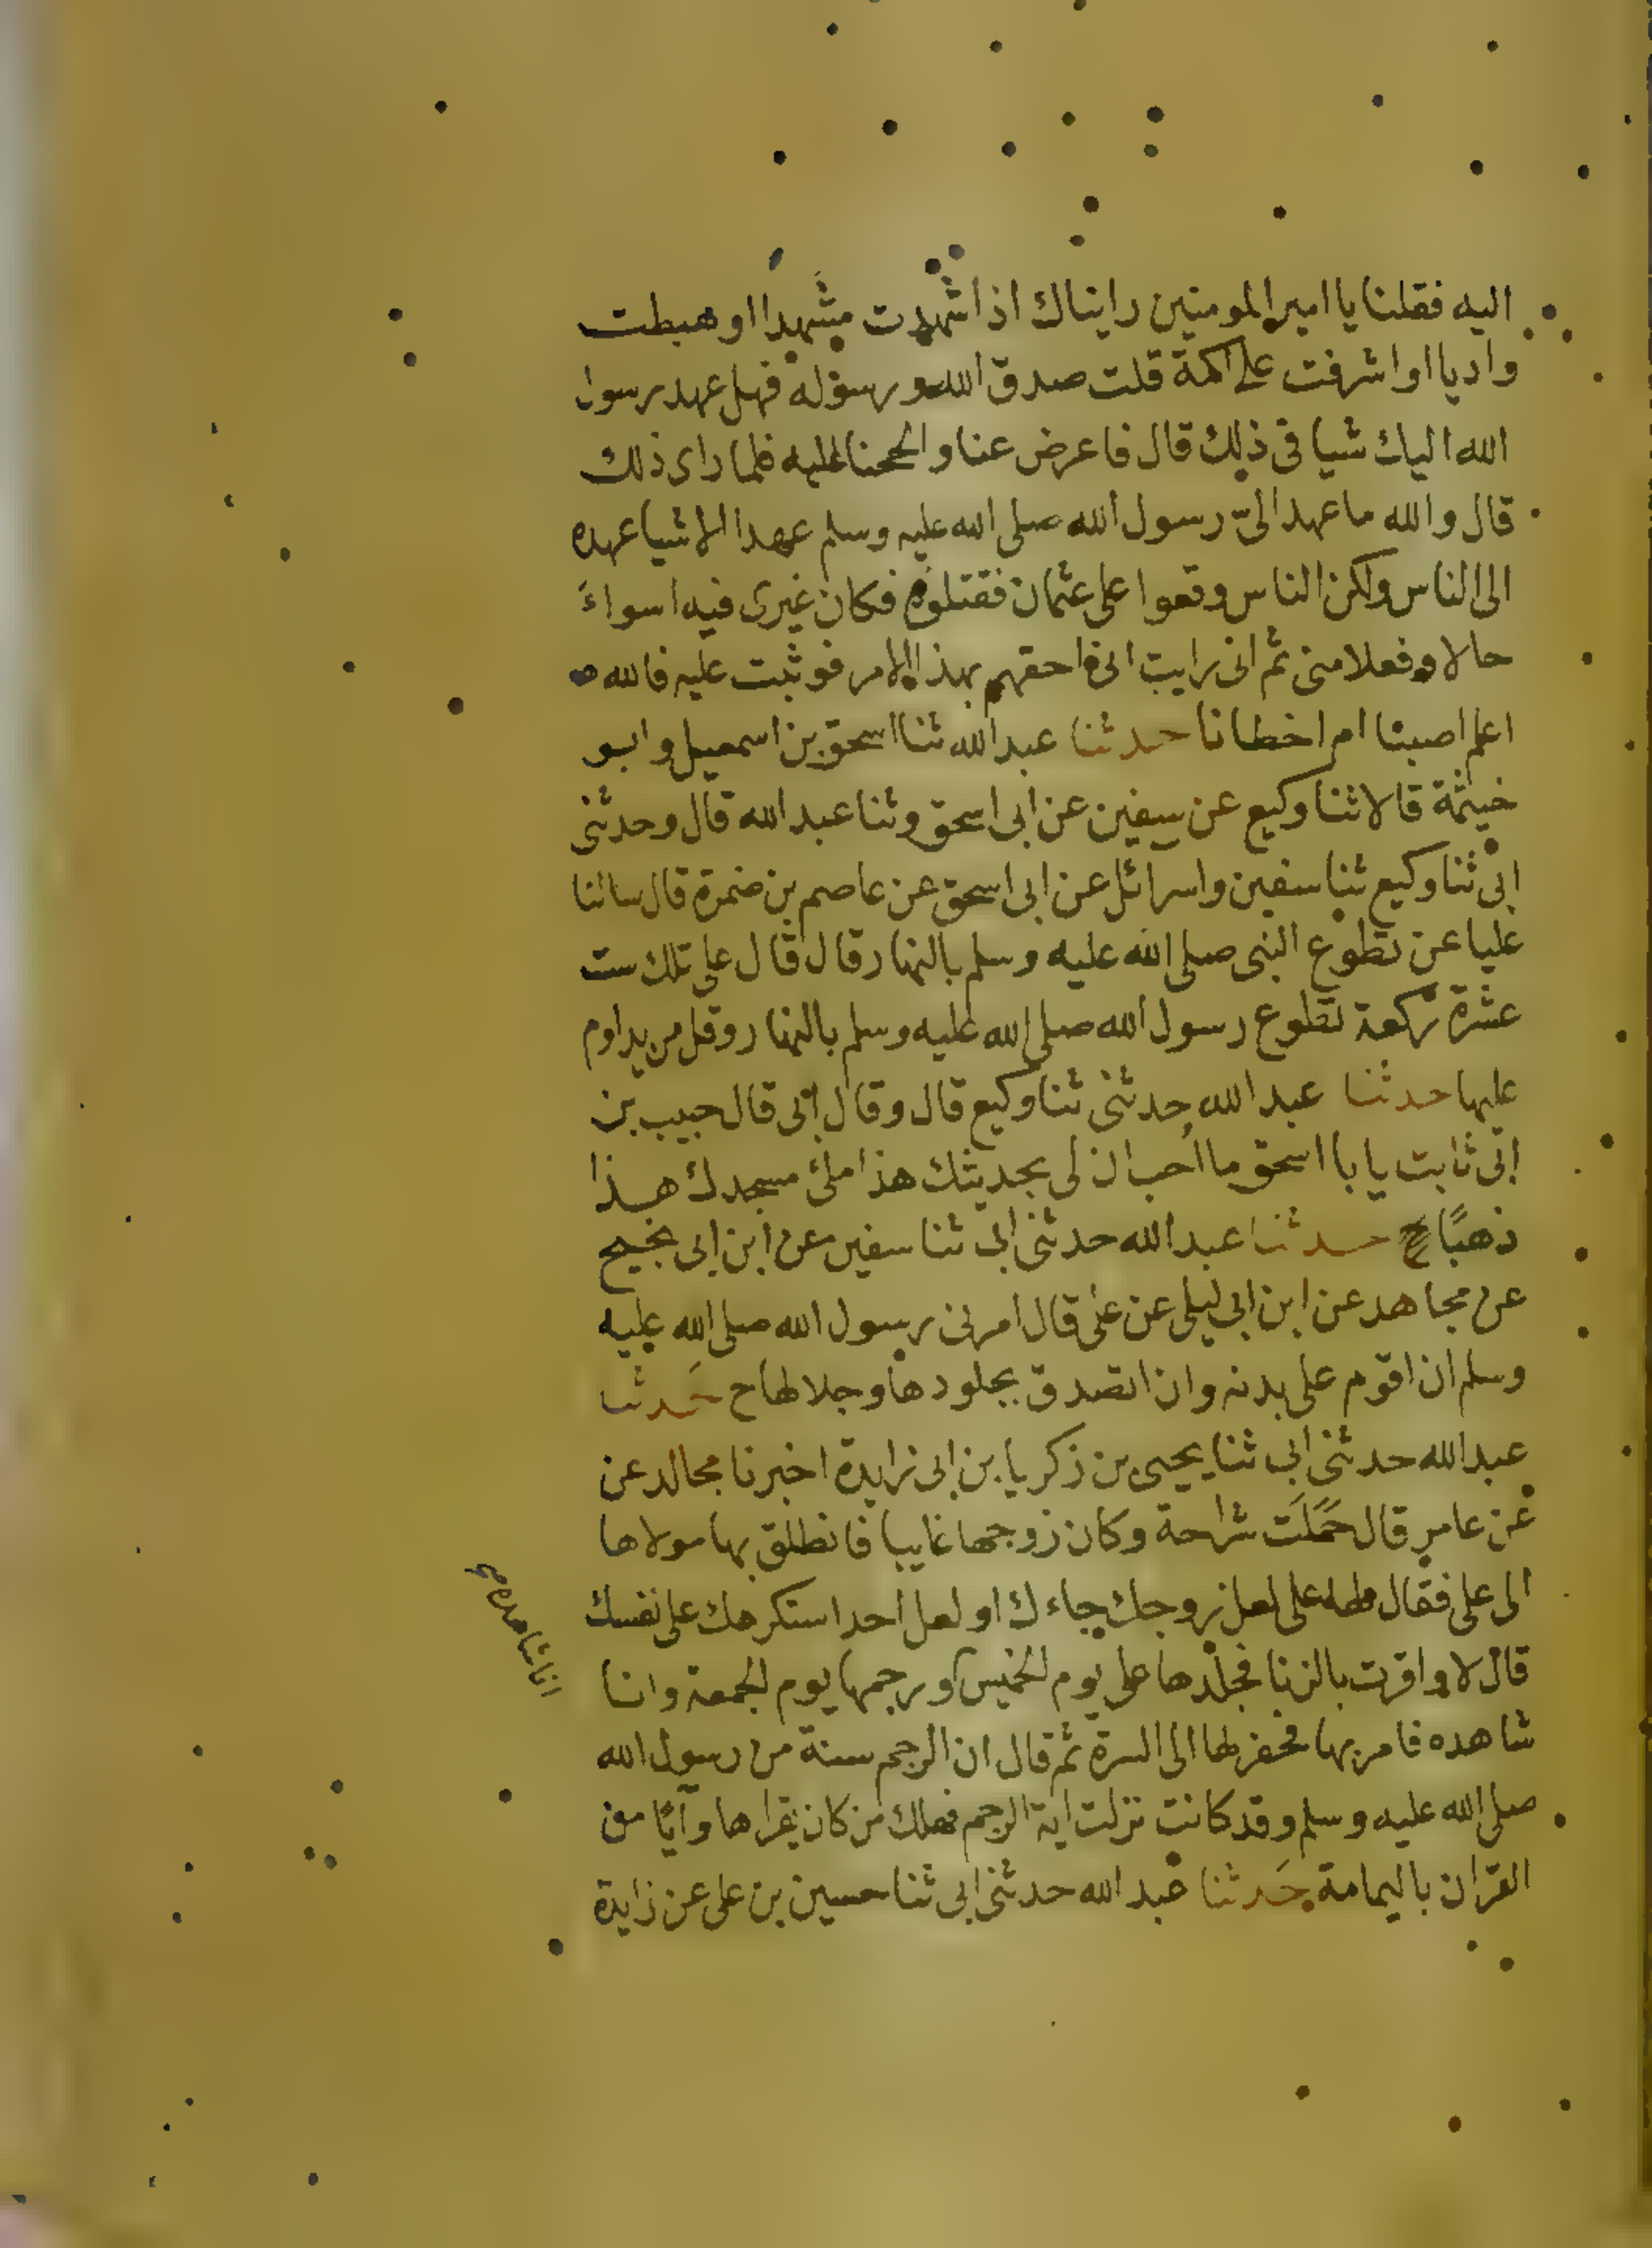 اليه فقلنا يا امير المومنين رايناك اذا شهدت مشهدا او هبطت
واديا او اشرفت على اكمة قلت صدق الله ورسوله فهل عهد رسول
الله اليك شيا في ذلك قال فاعرض عنا والححنا عليه فلما راى ذلك
قال والله ما عهد اليّ رسول الله صلى الله عليه وسلم عهدا الا شيا عهده
الى الناس ولكن الناس وقعوا على عثمان فقتلوه فكان غيرى فيه اسواءَ
حالا وفعلا منى ثم انى رايت انى احقهم بهذا الامر فوثبت عليه فالله
اعلم اصبنا ام اخطانا حدثنا عبد الله ثنا اسحق بن اسمعيل وابو
خيثمة قالا ثنا وكيع عن سفين عن ابى اسحق وثنا عبد الله قال وحدثنى
ابى ثنا وكيع ثنا سفين واسرائل عن ابى اسحق عن عاصم بن ضمرة قال سالنا
عليا عن تطوع النبى صلى الله عليه وسلم بالنهار قال قال على تلك ست
عشرة ركعة تطوع رسول الله صلى الله عليه وسلم بالنهار وقل من يداوم
عليها حدثنا عبد الله حدثنى ثنا وكيع قال وقال ابى قال حبيب بن
ابى ثابت يا با اسحق ما احب ان لى بحديثك هذا ملئ مسجدك هذا
ذهبًا حدثنا عبد الله حدثنى ابى ثنا سفين عن ابن ابى نجيح
عن مجاهد عن ابن ابى ليلى عن على قال امرنى رسول الله صلى الله عليه
وسلم ان اقوم على بدنه وان اتصدق بجلودها وجلالها ح حدثنا
عبد الله حدثنى ابى ثنا يحيى بن زكريا بن ابى زايدة اخبرنا مجالد عن
عن عامر قال حَمَلَت شراحة وكان زوجها غايبا فانطلق بها مولاها
الى على فقال لها على لعل زوجك جاءك او لعل احدا استكرهك على نفسك
قال لا واقرت بالزنا فجلدها على يوم الخميس ورجمها يوم الجمعة وانا
شاهده فامر بها فحفر لها الى السرة ثم قال ان الرجم سنة من رسول الله
صلى الله عليه وسلم وقد كانت نزلت اية الرجم فهلك من كان يقراها وآيًا من
القران باليمامة حدثنا عبد الله حدثنى ابى ثنا حسين بن على عن زايدة
انا شاهده